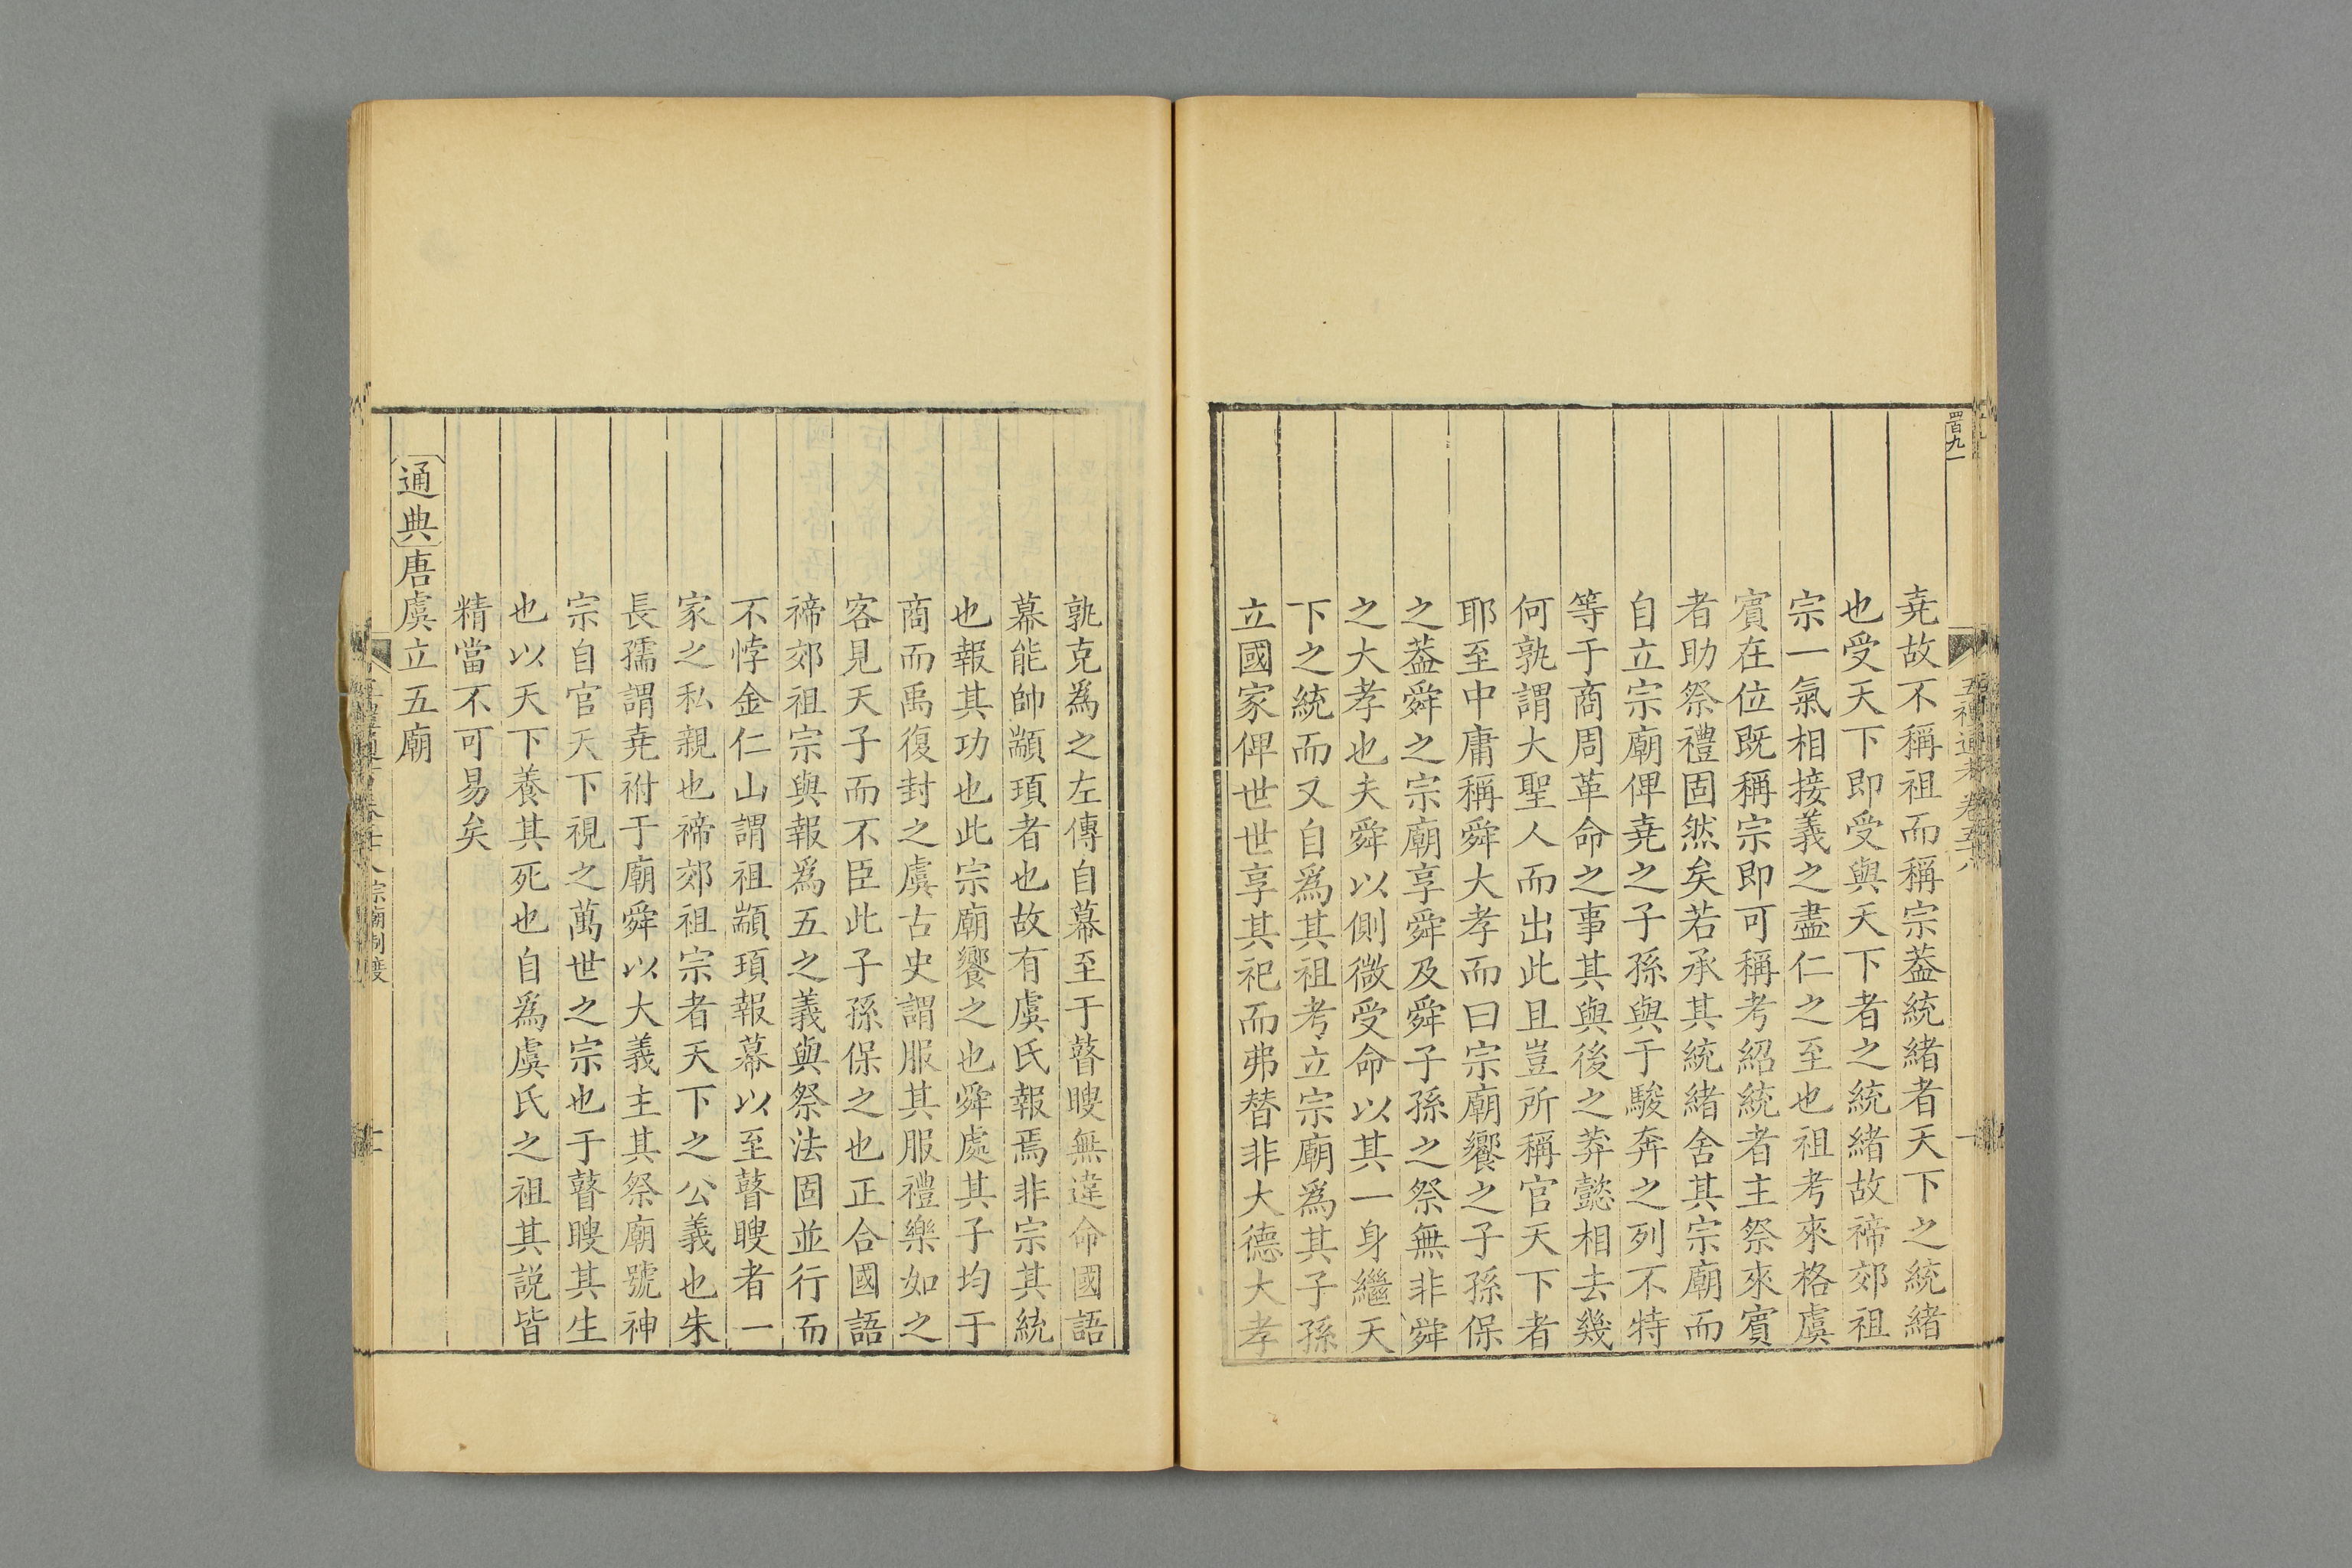 四百九一
堯故不稱祖而稱宗葢統緒者天下之統緒
也受天下即受與天下者之統緒故禘郊祖
宗一氣相接義之盡仁之至也祖考來格虞
賓在位既稱宗即可稱考紹統者主祭來賓
者助祭禮固然矣若承其統緒舍其宗廟而
自立宗廟俾堯之子孫與于駿奔之列不特
等于商周革命之事其與後之莽懿相去幾
何孰謂大聖人而出此且豈所稱官天下者
耶至中庸稱舜大孝而曰宗廟饗之子孫保
之葢舜之宗廟享舜及舜子孫之祭無非舜
之大孝也夫舜以側微受命以其一身繼天
下之統而又自爲其祖考立宗廟爲其子孫
立國家俾世世享其祀而弗替非大德大孝
孰克爲之左傳自幕至于瞽瞍無違命國語
幕能帥顓頊者也故有虞氏報焉非宗其統
也報其功也此宗廟饗之也舜處其子均于
商而禹復封之虞古史謂服其服禮樂如之
客見天子而不臣此子孫保之也正合國語
禘郊祖宗與報爲五之義與祭法固並行而
不悖金仁山謂祖顓頊報幕以至瞽瞍者一
家之私親也禘郊祖宗者天下之公義也朱
長孺謂堯祔于廟舜以大義主其祭廟號神
宗自官天下視之萬世之宗也于瞽瞍其生
也以天下養其死也自爲虞氏之祖其説皆
精當不可易矣
通典唐虞立五廟
宗廟制度